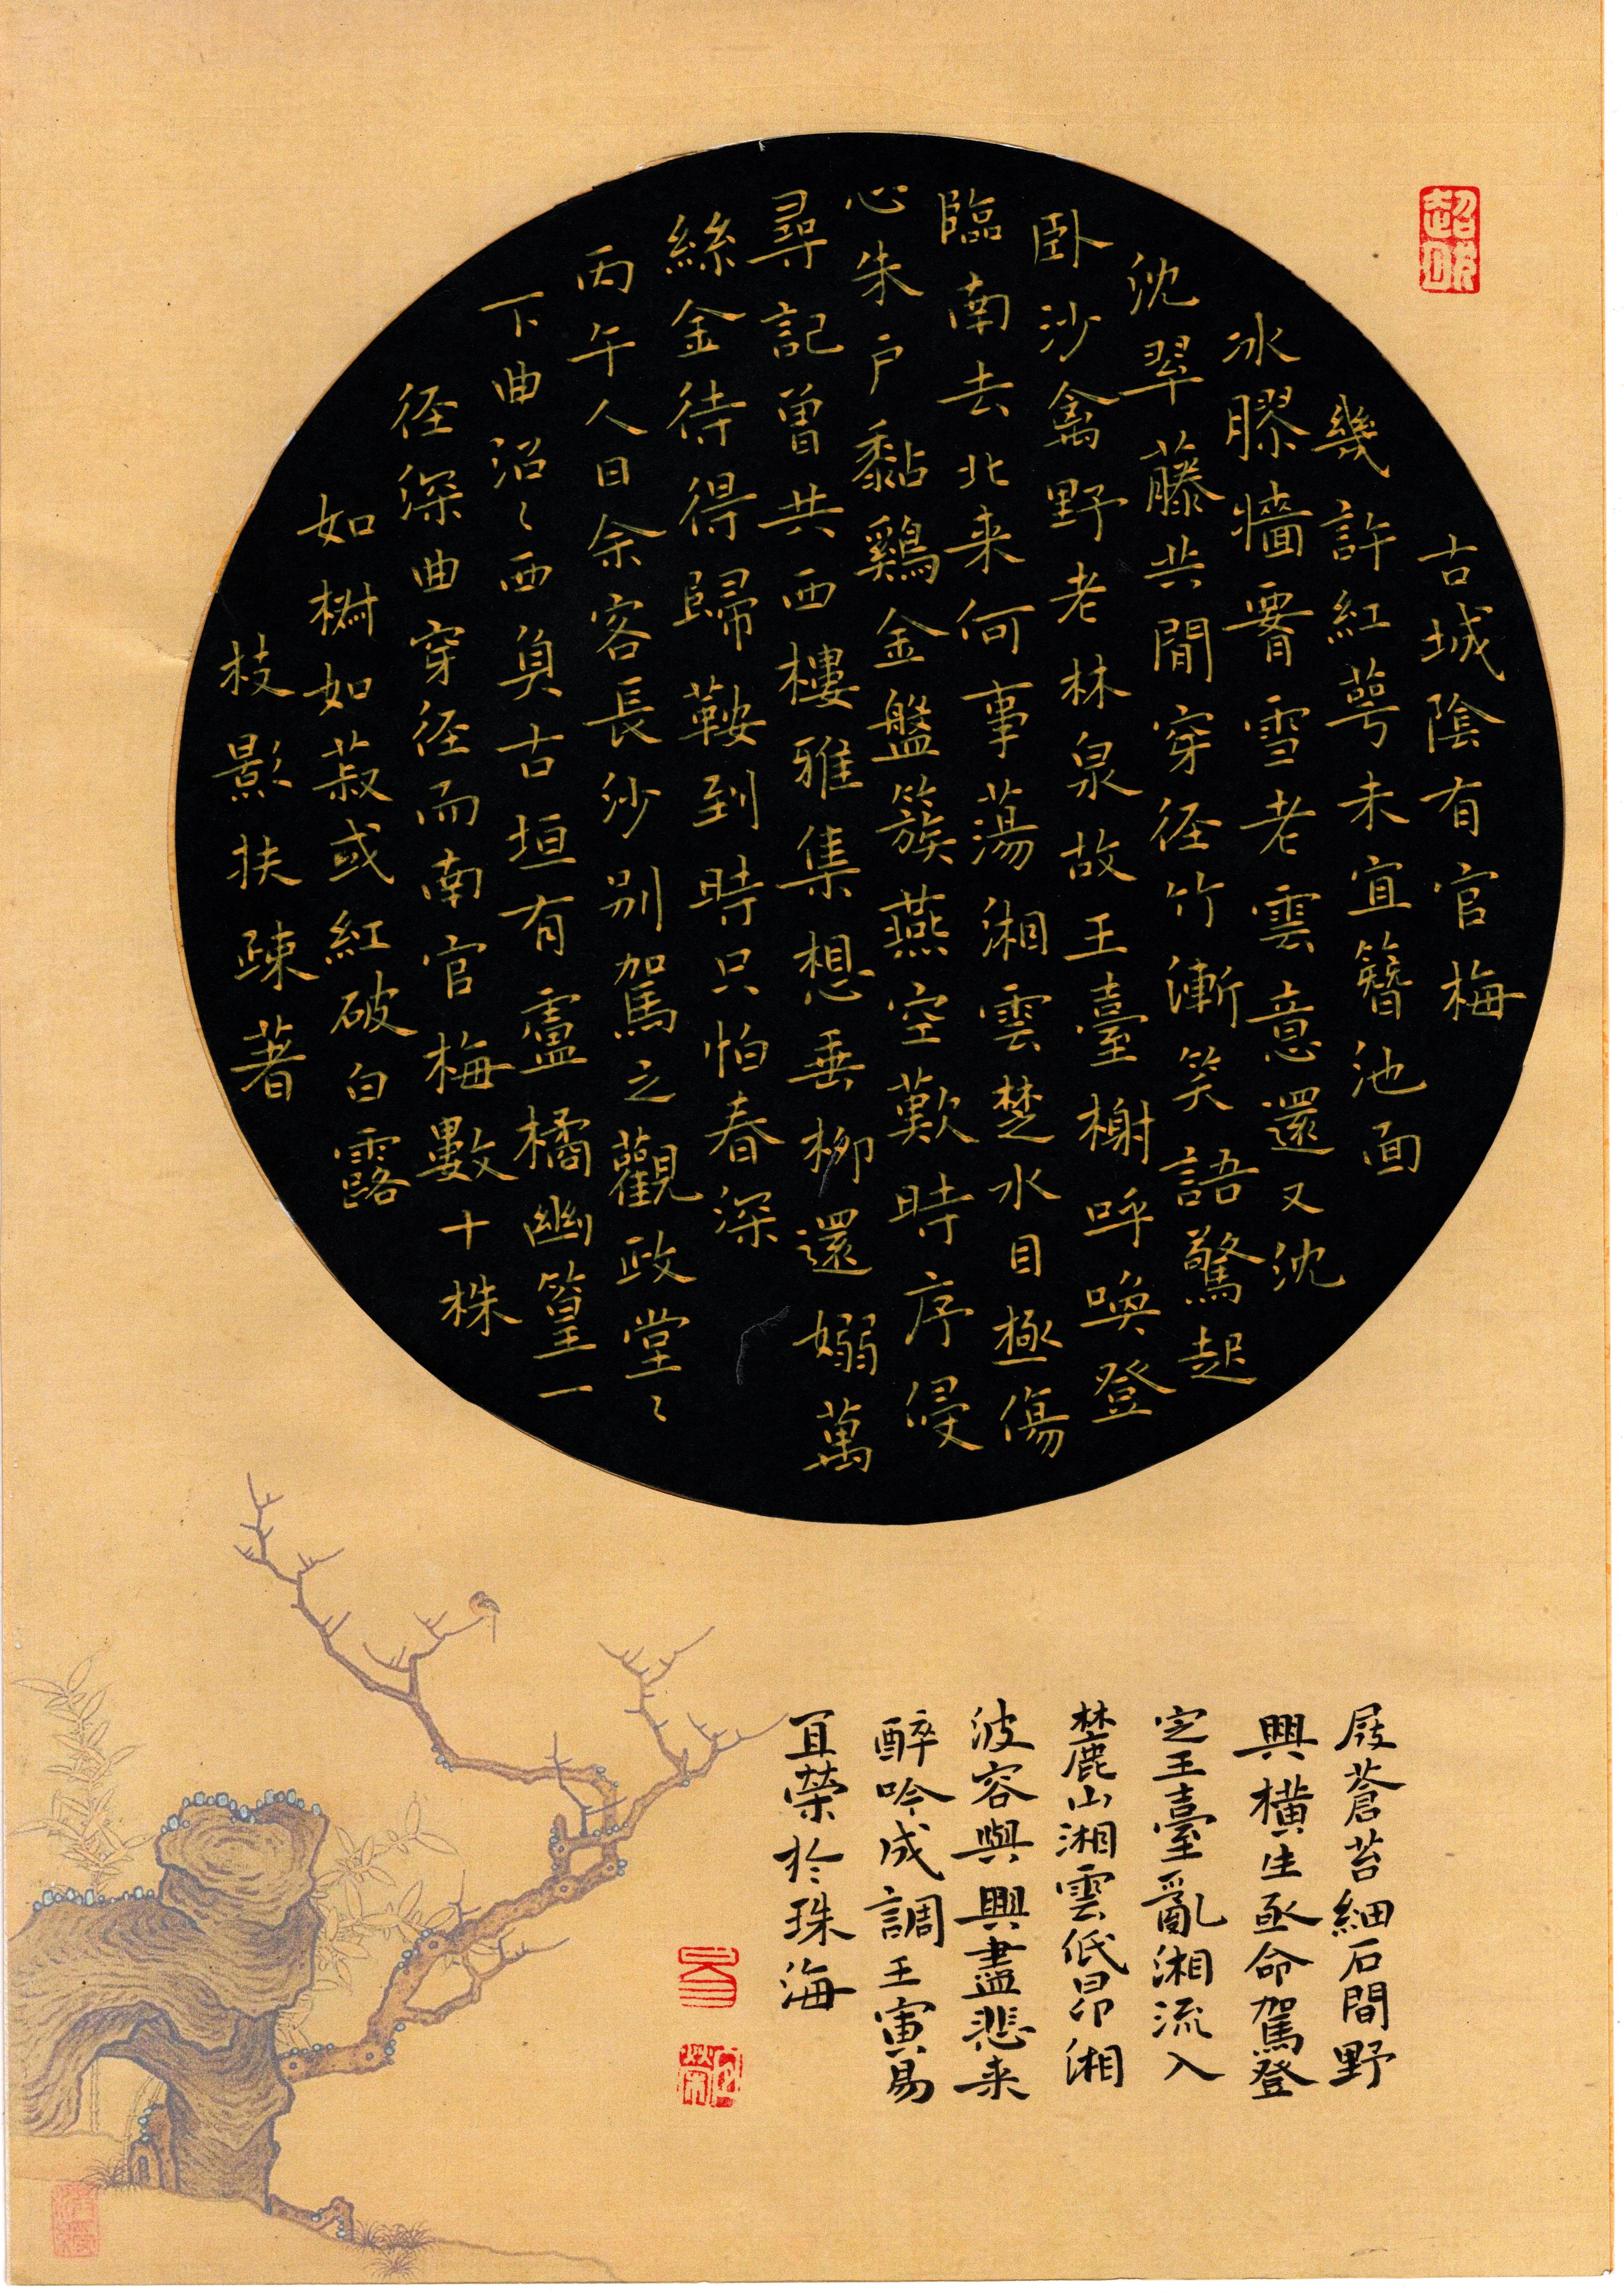 古城陰有官梅
幾許紅萼未宜簪池面
冰膠牆腰雪老雲意還又沈
沈翠藤共閒穿径竹漸笑語驚起
卧沙禽野老林泉故王臺榭呼喚登
臨南去北来何事蕩湘雲楚水目極傷
心朱户黏鷄金盤簇燕空歎時序侵
尋記曾共西樓雅集想垂柳還嫋萬
絲金待得歸鞍到時只怕春深
丙午人日余客長沙别駕之觀政堂〻
下曲沼〻西負古垣有盧橘幽篁一
径深曲穿径而南官梅數十株
如椒如菽或紅破白露
枝影扶疎著
屐蒼苔細石間野
興横生亟命駕登
定王臺亂湘流入
麓山湘雲低昂湘
波容與興盡悲来
醉吟成調壬寅易
宜榮於珠海